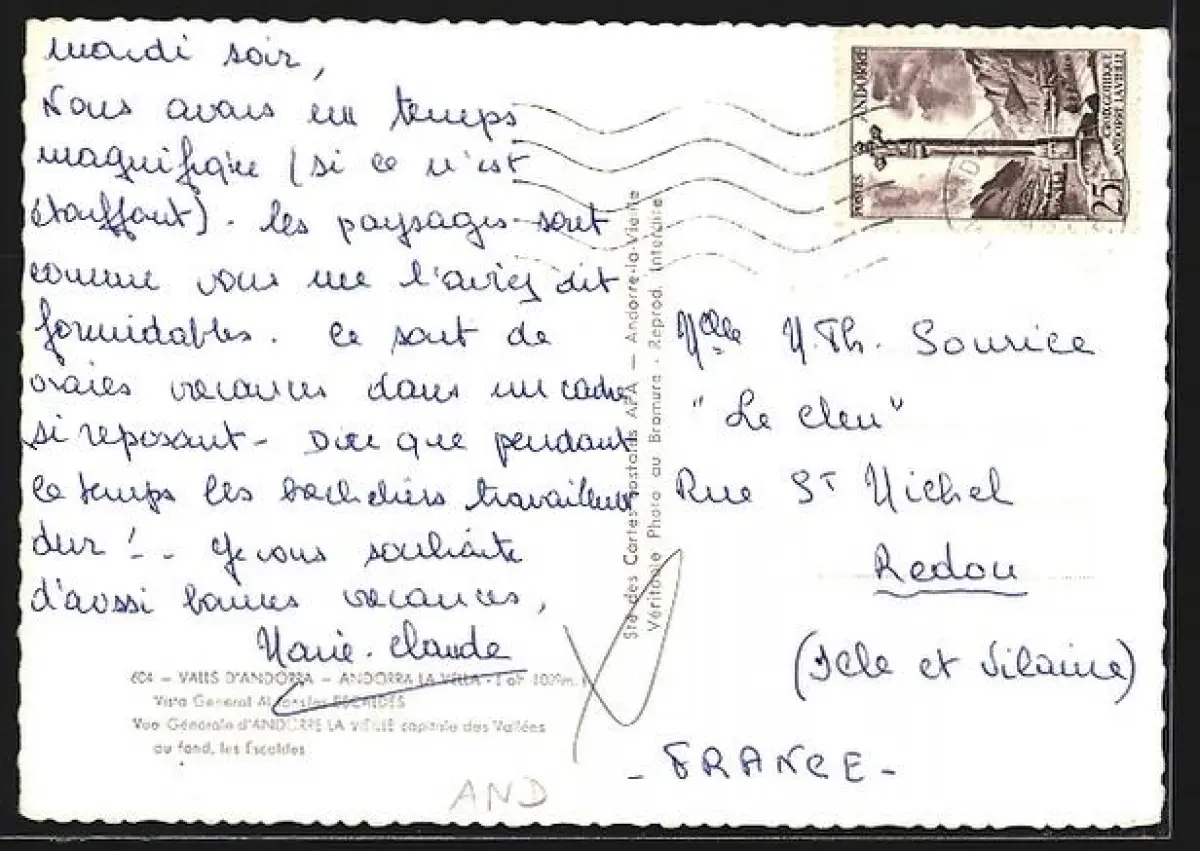 mardi soir,
Nous avons un temps
magnifique (si ce n'est
étouffant). Les paysages sont
comme vous me l'aviez dit
formidables. Ce sont de
vraies vacances dans un cadre
si reposant - Dire que pendant
ce temps les bacheliers travaillent
dur ! - . Je vous souhaite
d'aussi bonnes vacances,
Marie-Claude
604 - VALLS D'ANDORRA - ANDORRA LA VELLA
Vista General Al fons les ESCALDES
Vue Générale d'ANDORRE LA VIEILLE capitale des Vallées
au fond, les Escaldes
AND
Sté des Cartes Postales APA — Andorre-la-Vieille
Véritable Photo au Bromure - Reprod. Interdite
ANDORRE
POSTES
CROIX GOTHIQUE
ANDORRE LA VIEILLE
25F
Mlle M.Th. Sourice
"Le Cleu"
Rue St Michel
Redon
(Ille et Vilaine)
- FRANCE -